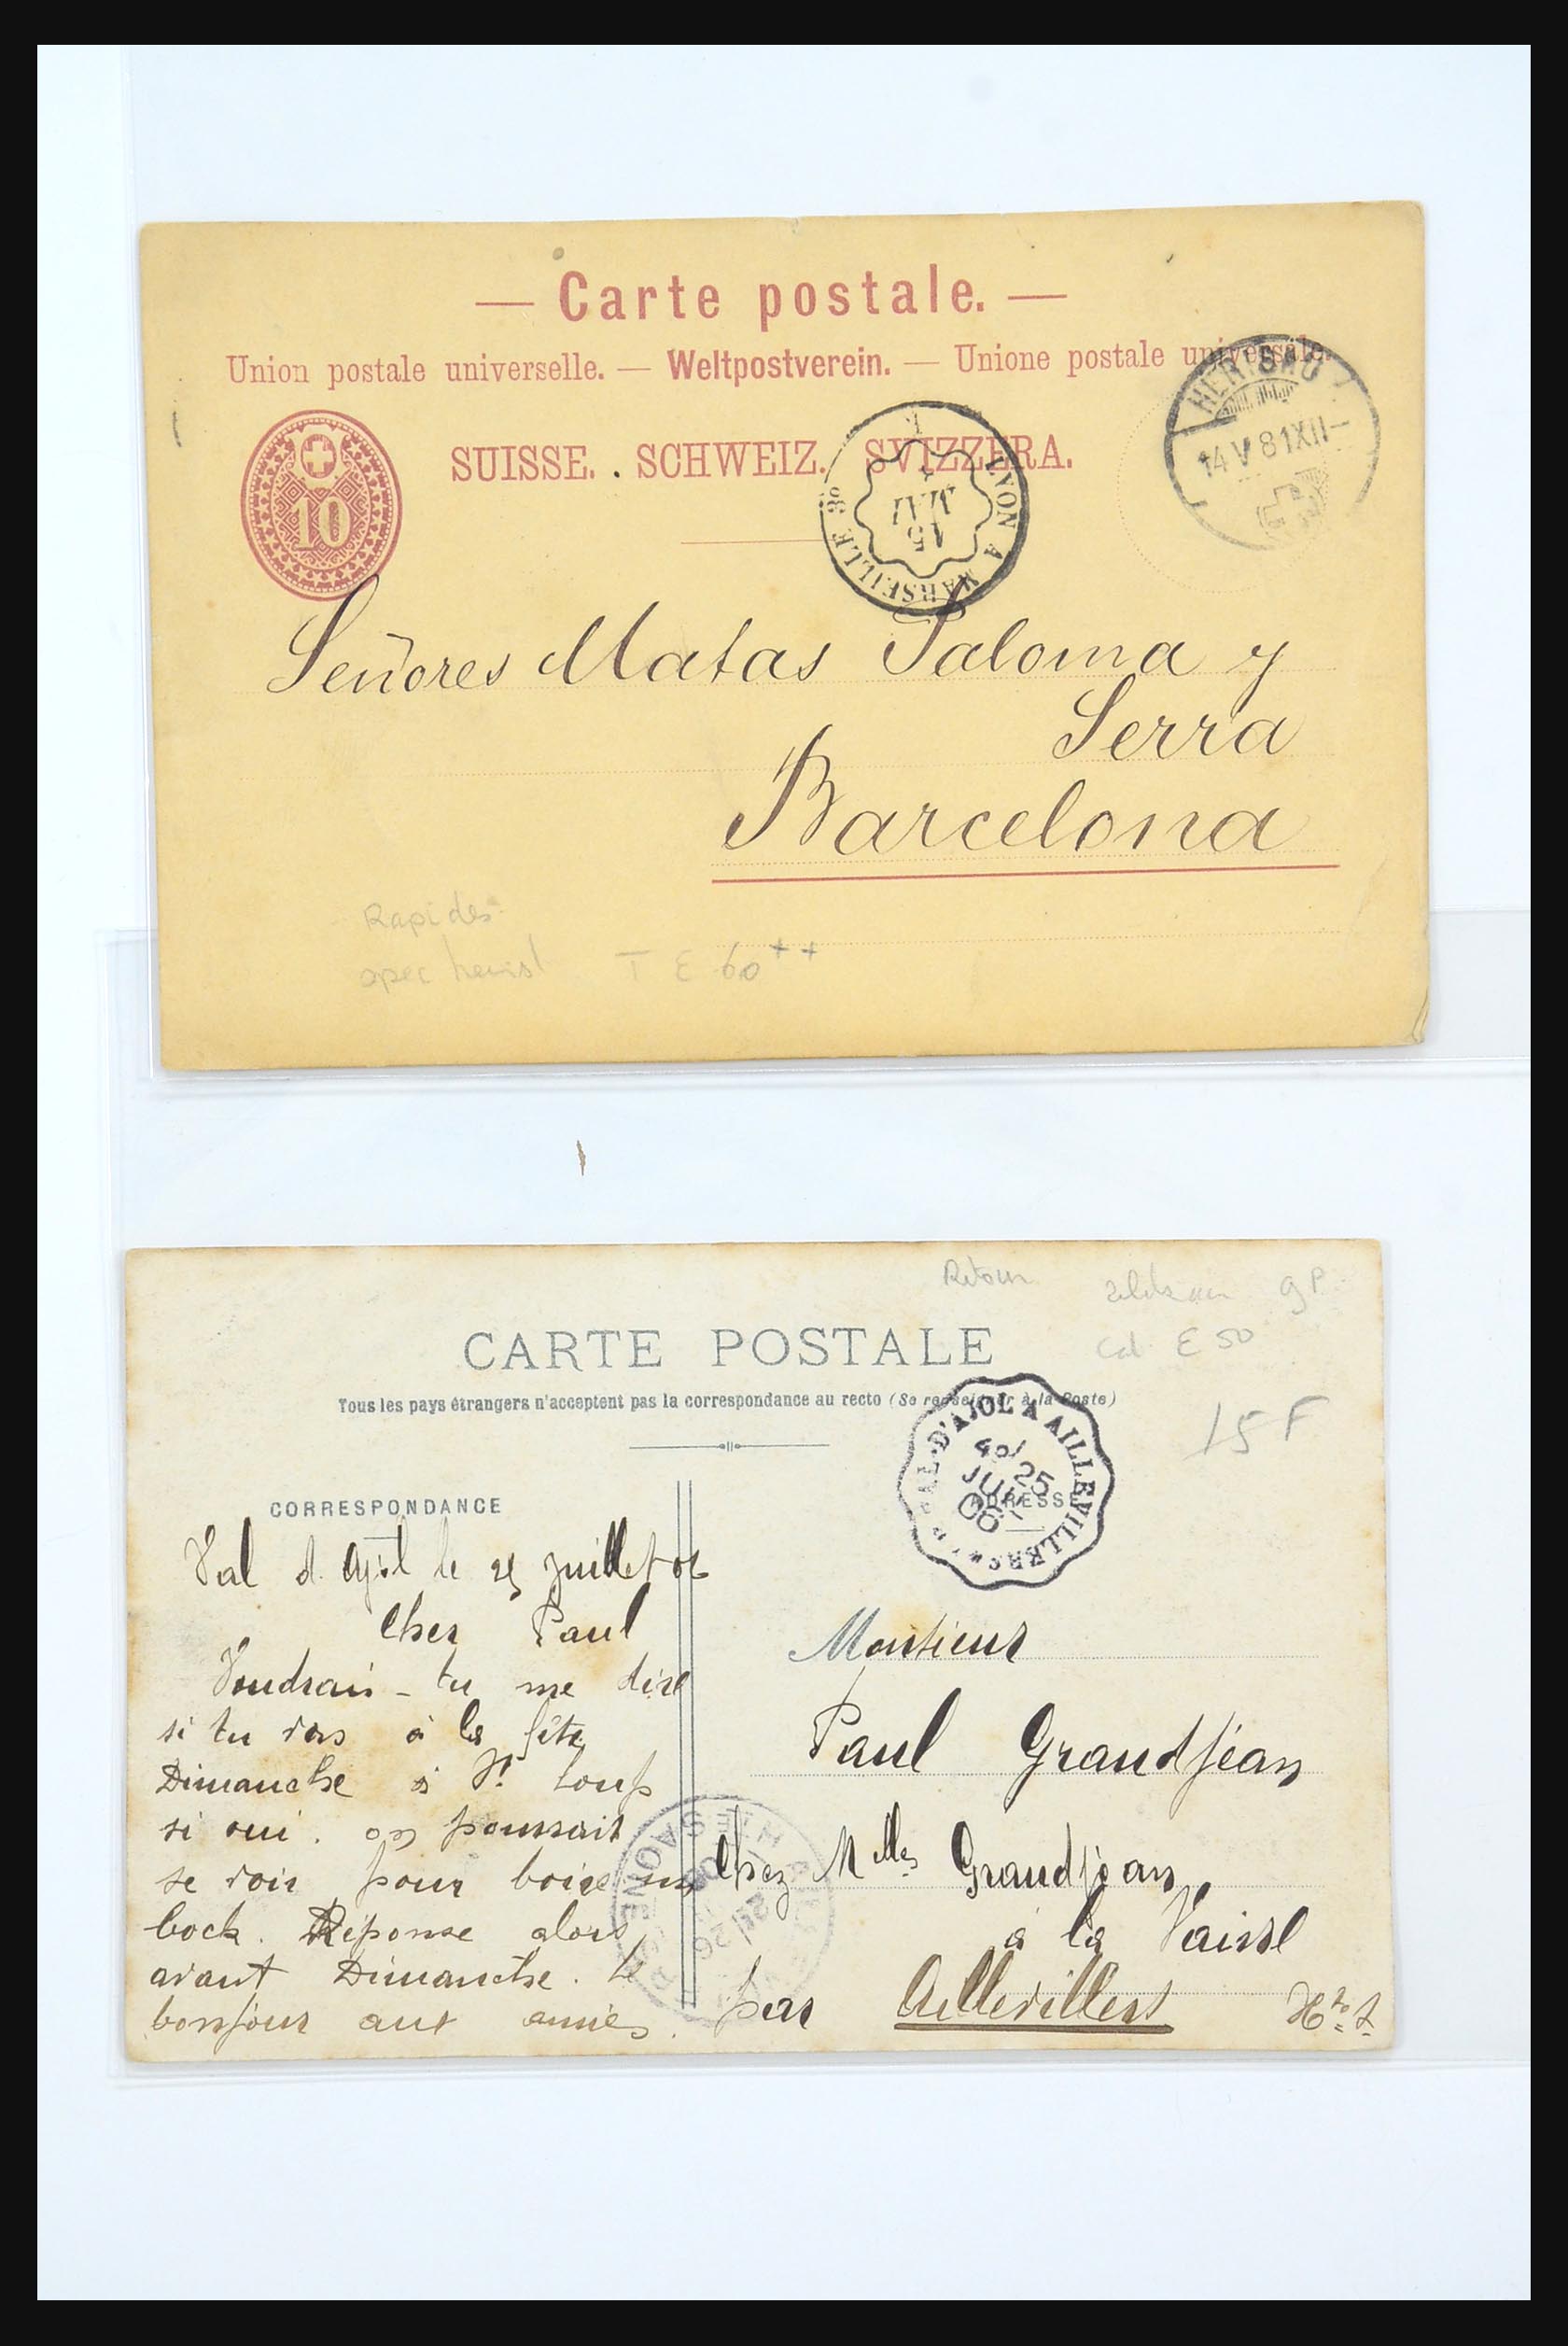 — Carte postale. —
Union postale universelle. — Weltpostverein. — Unione postale universale.
SUISSE. . SCHWEIZ. SVIZZERA.
10
HERISAU
14 V 81 XII –
LYON A MARSEILLE
15
MAI
Señores Matas Saloma y
Serra
Barcelona
Rapides
T E 60 ++
Retour
9 P
E 50
15 F
CARTE POSTALE
Tous les pays étrangers n'acceptent pas la correspondance au recto (Se renseigner à la Poste)
VAL-D'AJOL A AILLEVILLERS
25
JUIL
06
CORRESPONDANCE
ADRESSE
Val d. Ajol le 25 juillet 06
Cher Paul
Voudrais-tu me dire
si tu vas à la fête
Dimanche à St Loup
si oui. on pourrait
se voir pour boire un
bock. Réponse alors
avant Dimanche. Le
bonjour aux amies.
Monsieur
Paul Grandjean
Chez Melles Grandjean
à la Vaivre
par Aillevillers Hte S